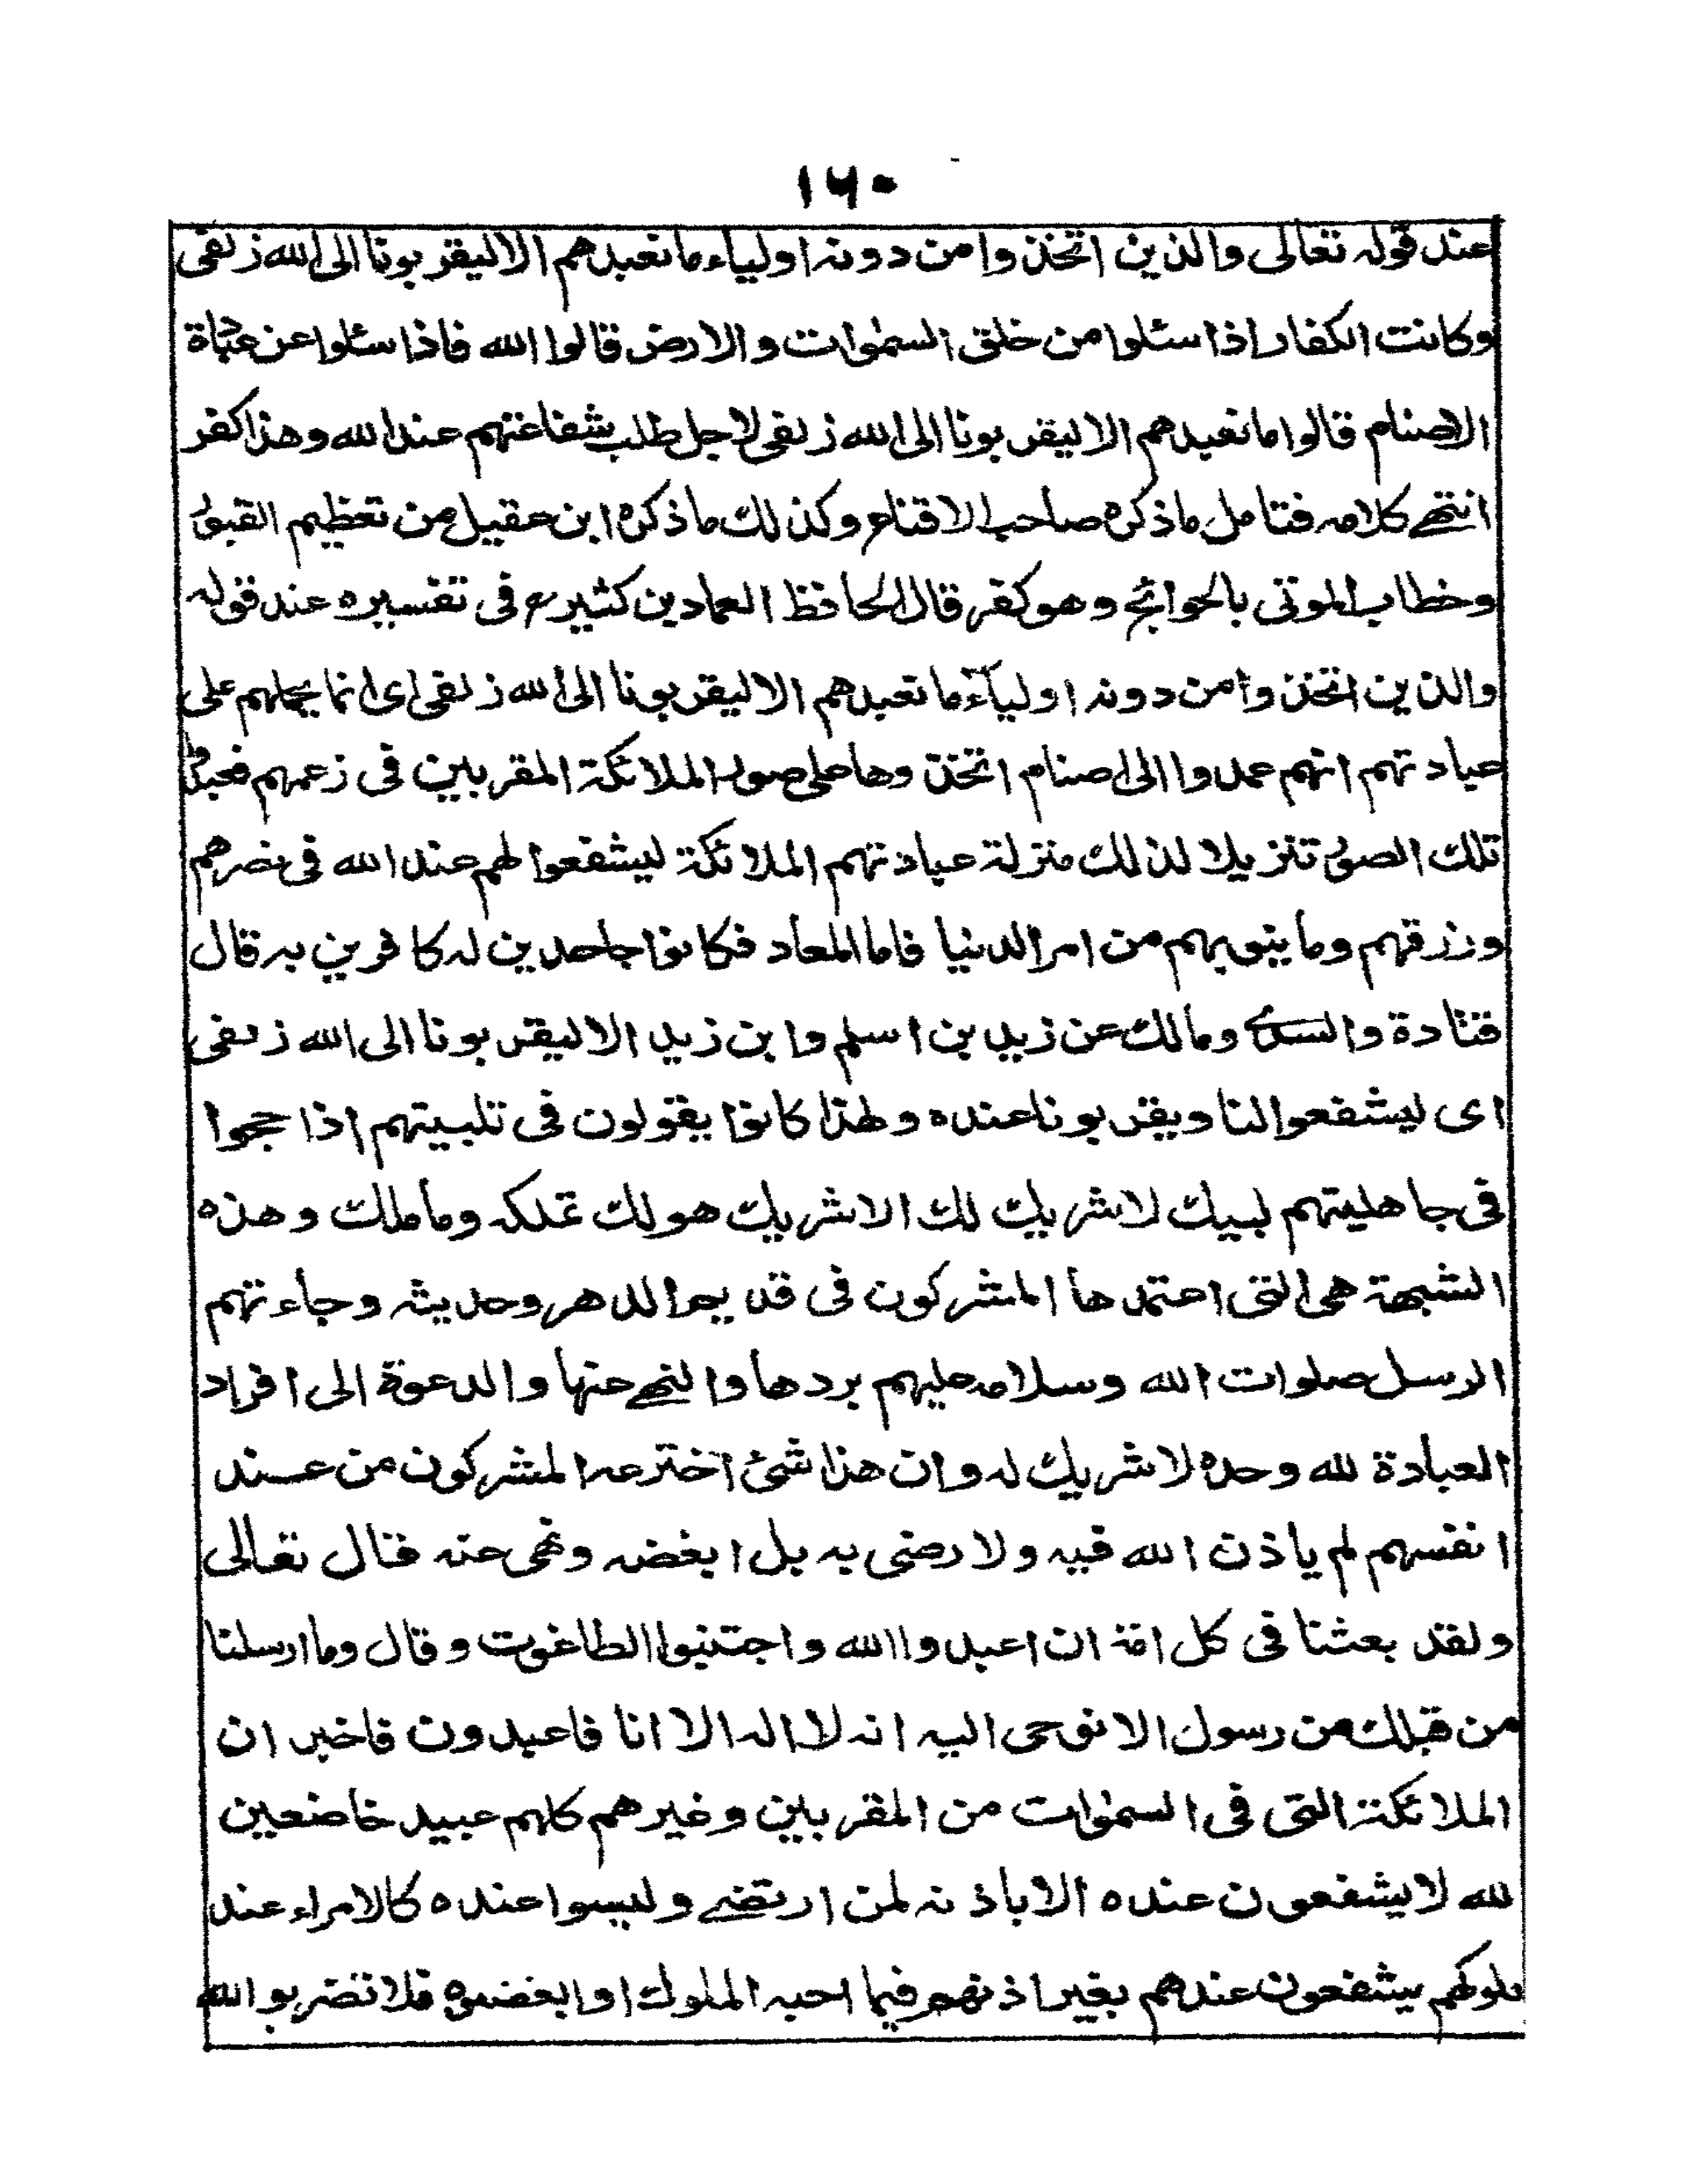 ١٦٠
عند قوله تعالى والذين اتخذوا من دونه اولياء ما نعبدهم الا ليقربونا الى الله زلفى
وكانت الكفار اذا سئلوا من خلق السموات والارض قالوا الله فاذا سئلوا عن عبادة
الاصنام قالوا ما نعبدهم الا ليقربونا الى الله زلفى لاجل طلب شفاعتهم عند الله وهذا كفر
انتهى كلامه فتامل ما ذكره صاحب الاقناع وكذلك ما ذكره ابن عقيل من تعظيم القبور
وخطاب الموتى بالحوائج وهو كفر قال الحافظ العماد بن كثير رح فى تفسيره عند قوله
والذين اتخذوا من دونه اولياء ما نعبدهم الا ليقربونا الى الله زلفى اى انما يحملهم على
عبادتهم انهم عمدوا الى اصنام اتخذوها على صور الملائكة المقربين فى زعمهم فعبدوا
تلك الصور تنزيلا لذلك منزلة عبادتهم الملائكة ليشفعوا لهم عند الله فى نصرهم
ورزقهم وما ينوبهم من امر الدنيا فاما المعاد فكانوا جاحدين له كافرين به قال
قتادة والسدى ومالك عن زيد بن اسلم وابن زيد الا ليقربونا الى الله زلفى
اى ليشفعوا لنا ويقربونا عنده ولهذا كانوا يقولون فى تلبيتهم اذا حجوا
فى جاهليتهم لبيك لا شريك لك الا شريك هو لك تملكه وما ملك وهذه
الشبهة هى التى اعتمدها المشركون فى قديم الدهر وحديثه وجاءتهم
الرسل صلوات الله وسلامه عليهم بردها والنهى عنها والدعوة الى افراد
العبادة لله وحده لا شريك له وان هذا شئ اخترعه المشركون من عند
انفسهم لم ياذن الله فيه ولا رضى به بل ابغضه ونهى عنه فقال تعالى
ولقد بعثنا فى كل امة ان اعبدوا الله واجتنبوا الطاغوت وقال وما ارسلنا
من قبلك من رسول الا نوحى اليه انه لا اله الا انا فاعبدون فاخبر ان
الملائكة التى فى السموات من المقربين وغيرهم كلهم عبيد خاضعين
لله لا يشفعون عنده الا باذنه لمن ارتضى وليسوا عنده كالامراء عند
ملوكهم يشفعون عندهم بغير اذنهم فيما احبه الملوك او ابغضوه فلا تضربوا لله